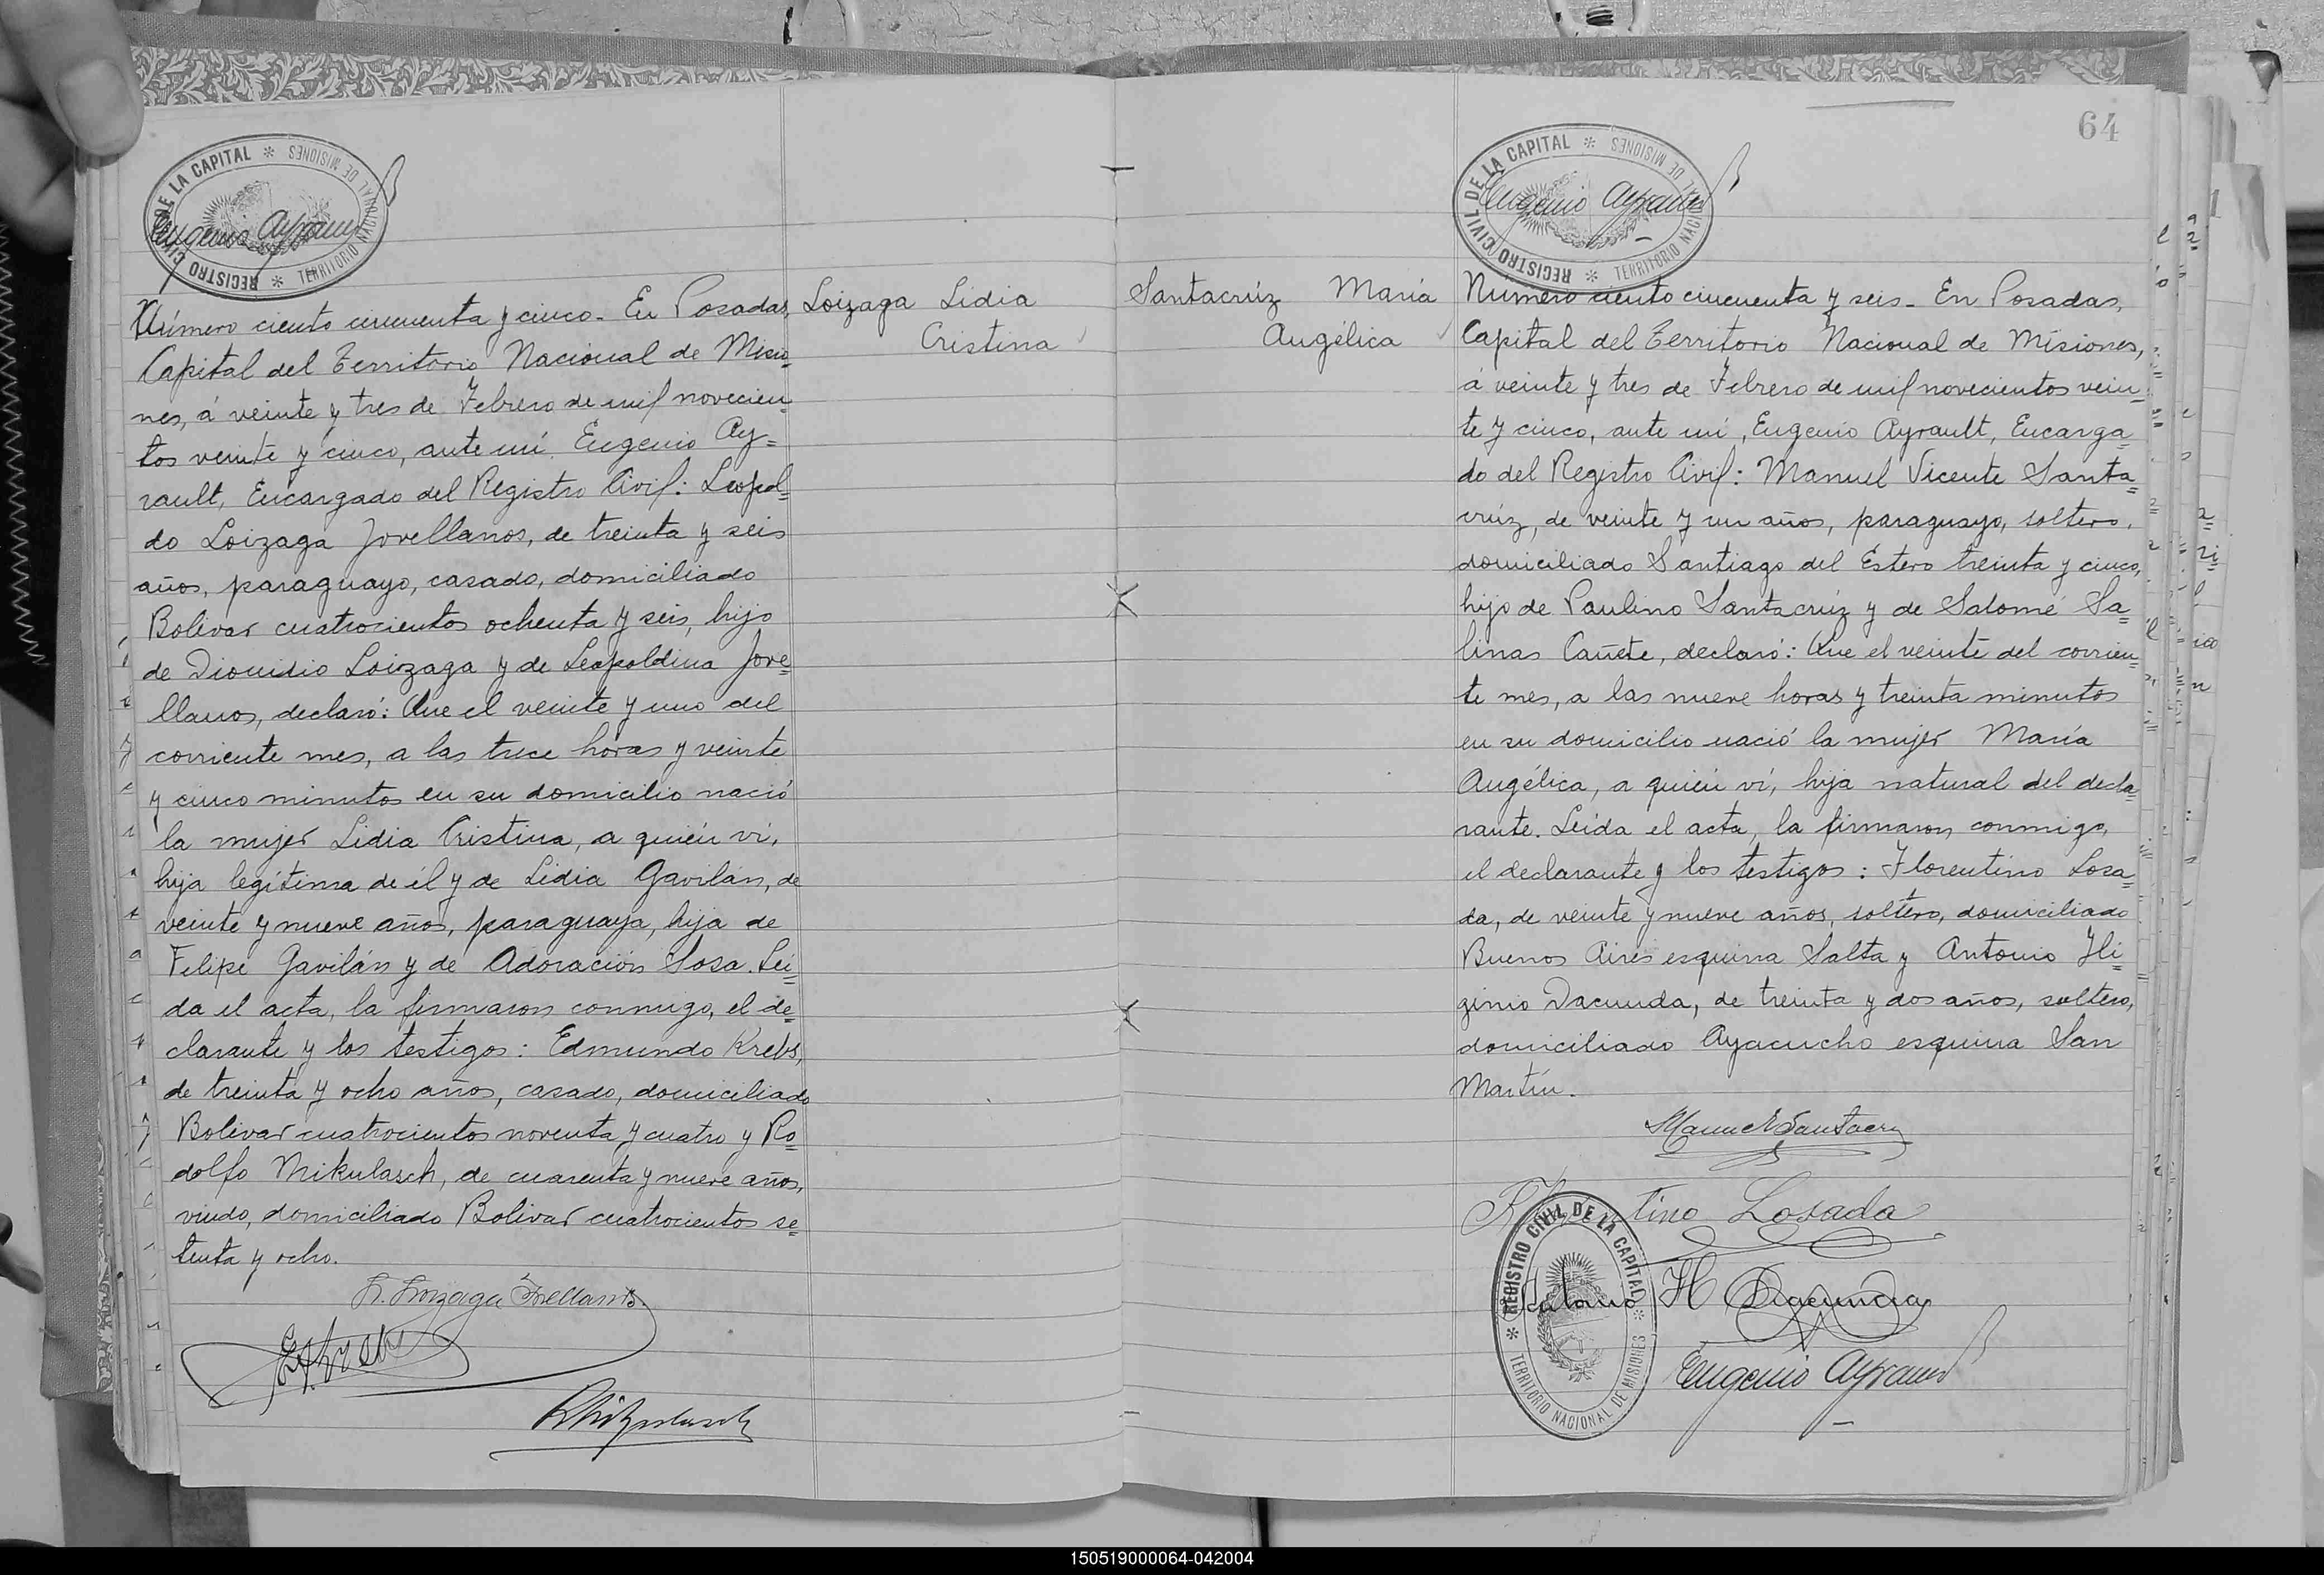 REGISTRO CIVIL DE LA CAPITAL * TERRITORIO NACIONAL DE MISIONES *
Eugenio Ayrault
Número ciento cincuenta y cinco. En Posadas,
Capital del Territorio Nacional de Misio=
nes, á veinte y tres de Febrero de mil novecien=
tos veinte y cinco, ante mí, Eugenio Ay=
rault, Encargado del Registro Civil: Leopol=
do Loizaga Jovellanos, de treinta y seis
años, paraguayo, casado, domiciliado
Bolivar cuatrocientos ochenta y seis, hijo
de Dionidio Loizaga y de Leopoldina Jove=
llanos, declaró: Que el veinte y uno del
corriente mes, a las trece horas y veinte
y cinco minutos en su domicilio nació
la mujer Lidia Cristina, a quién ví,
hija legítima de él y de Lidia Gavilán, de
veinte y nueve años, paraguaya, hija de
Felipe Gavilán y de Adoración Sosa. Leí=
da el acta, la firmaron conmigo, el de=
clarante y los testigos: Edmundo Krebs,
de treinta y ocho años, casado, domiciliado
Bolivar cuatrocientos noventa y cuatro y Ro=
dolfo Mikulasch, de cuarenta y nueve años,
viudo, domiciliado Bolivar cuatrocientos se=
tenta y ocho.
L. Loizaga Jovellanos
R Mikulasch
Loizaga Lidia
Cristina
Santacrúz María
Angélica
64
REGISTRO CIVIL DE LA CAPITAL * TERRITORIO NACIONAL DE MISIONES *
Eugenio Ayrault
Número ciento cincuenta y seis. En Posadas,
Capital del Territorio Nacional de Misiones,
á veinte y tres de Febrero de mil novecientos vein=
te y cinco, ante mí, Eugenio Ayrault, Encarga=
do del Registro Civil: Manuel Vicente Santa=
crúz, de veinte y un años, paraguayo, soltero,
domiciliado Santiago del Estero treinta y cinco,
hijo de Paulino Santacrúz y de Salomé Sa=
linas Cañete, declaró: Que el veinte del corrien=
te mes, a las nueve horas y treinta minutos
en su domicilio nació la mujer María
Angélica, a quién ví, hija natural del decla=
rante. Leída el acta, la firmaron conmigo,
el declarante y los testigos: Florentino Losa=
da, de veinte y nueve años, soltero, domiciliado
Buenos Aires esquina Salta y Antonio Hi=
ginio Dacunda, de treinta y dos años, soltero,
domiciliado Ayacucho esquina San
Martín.
Manuel Santacruz
Florentino Losada
Antonio H Dacunda
REGISTRO CIVIL DE LA CAPITAL * TERRITORIO NACIONAL DE MISIONES *
Eugenio Ayrault
150519000064-042004